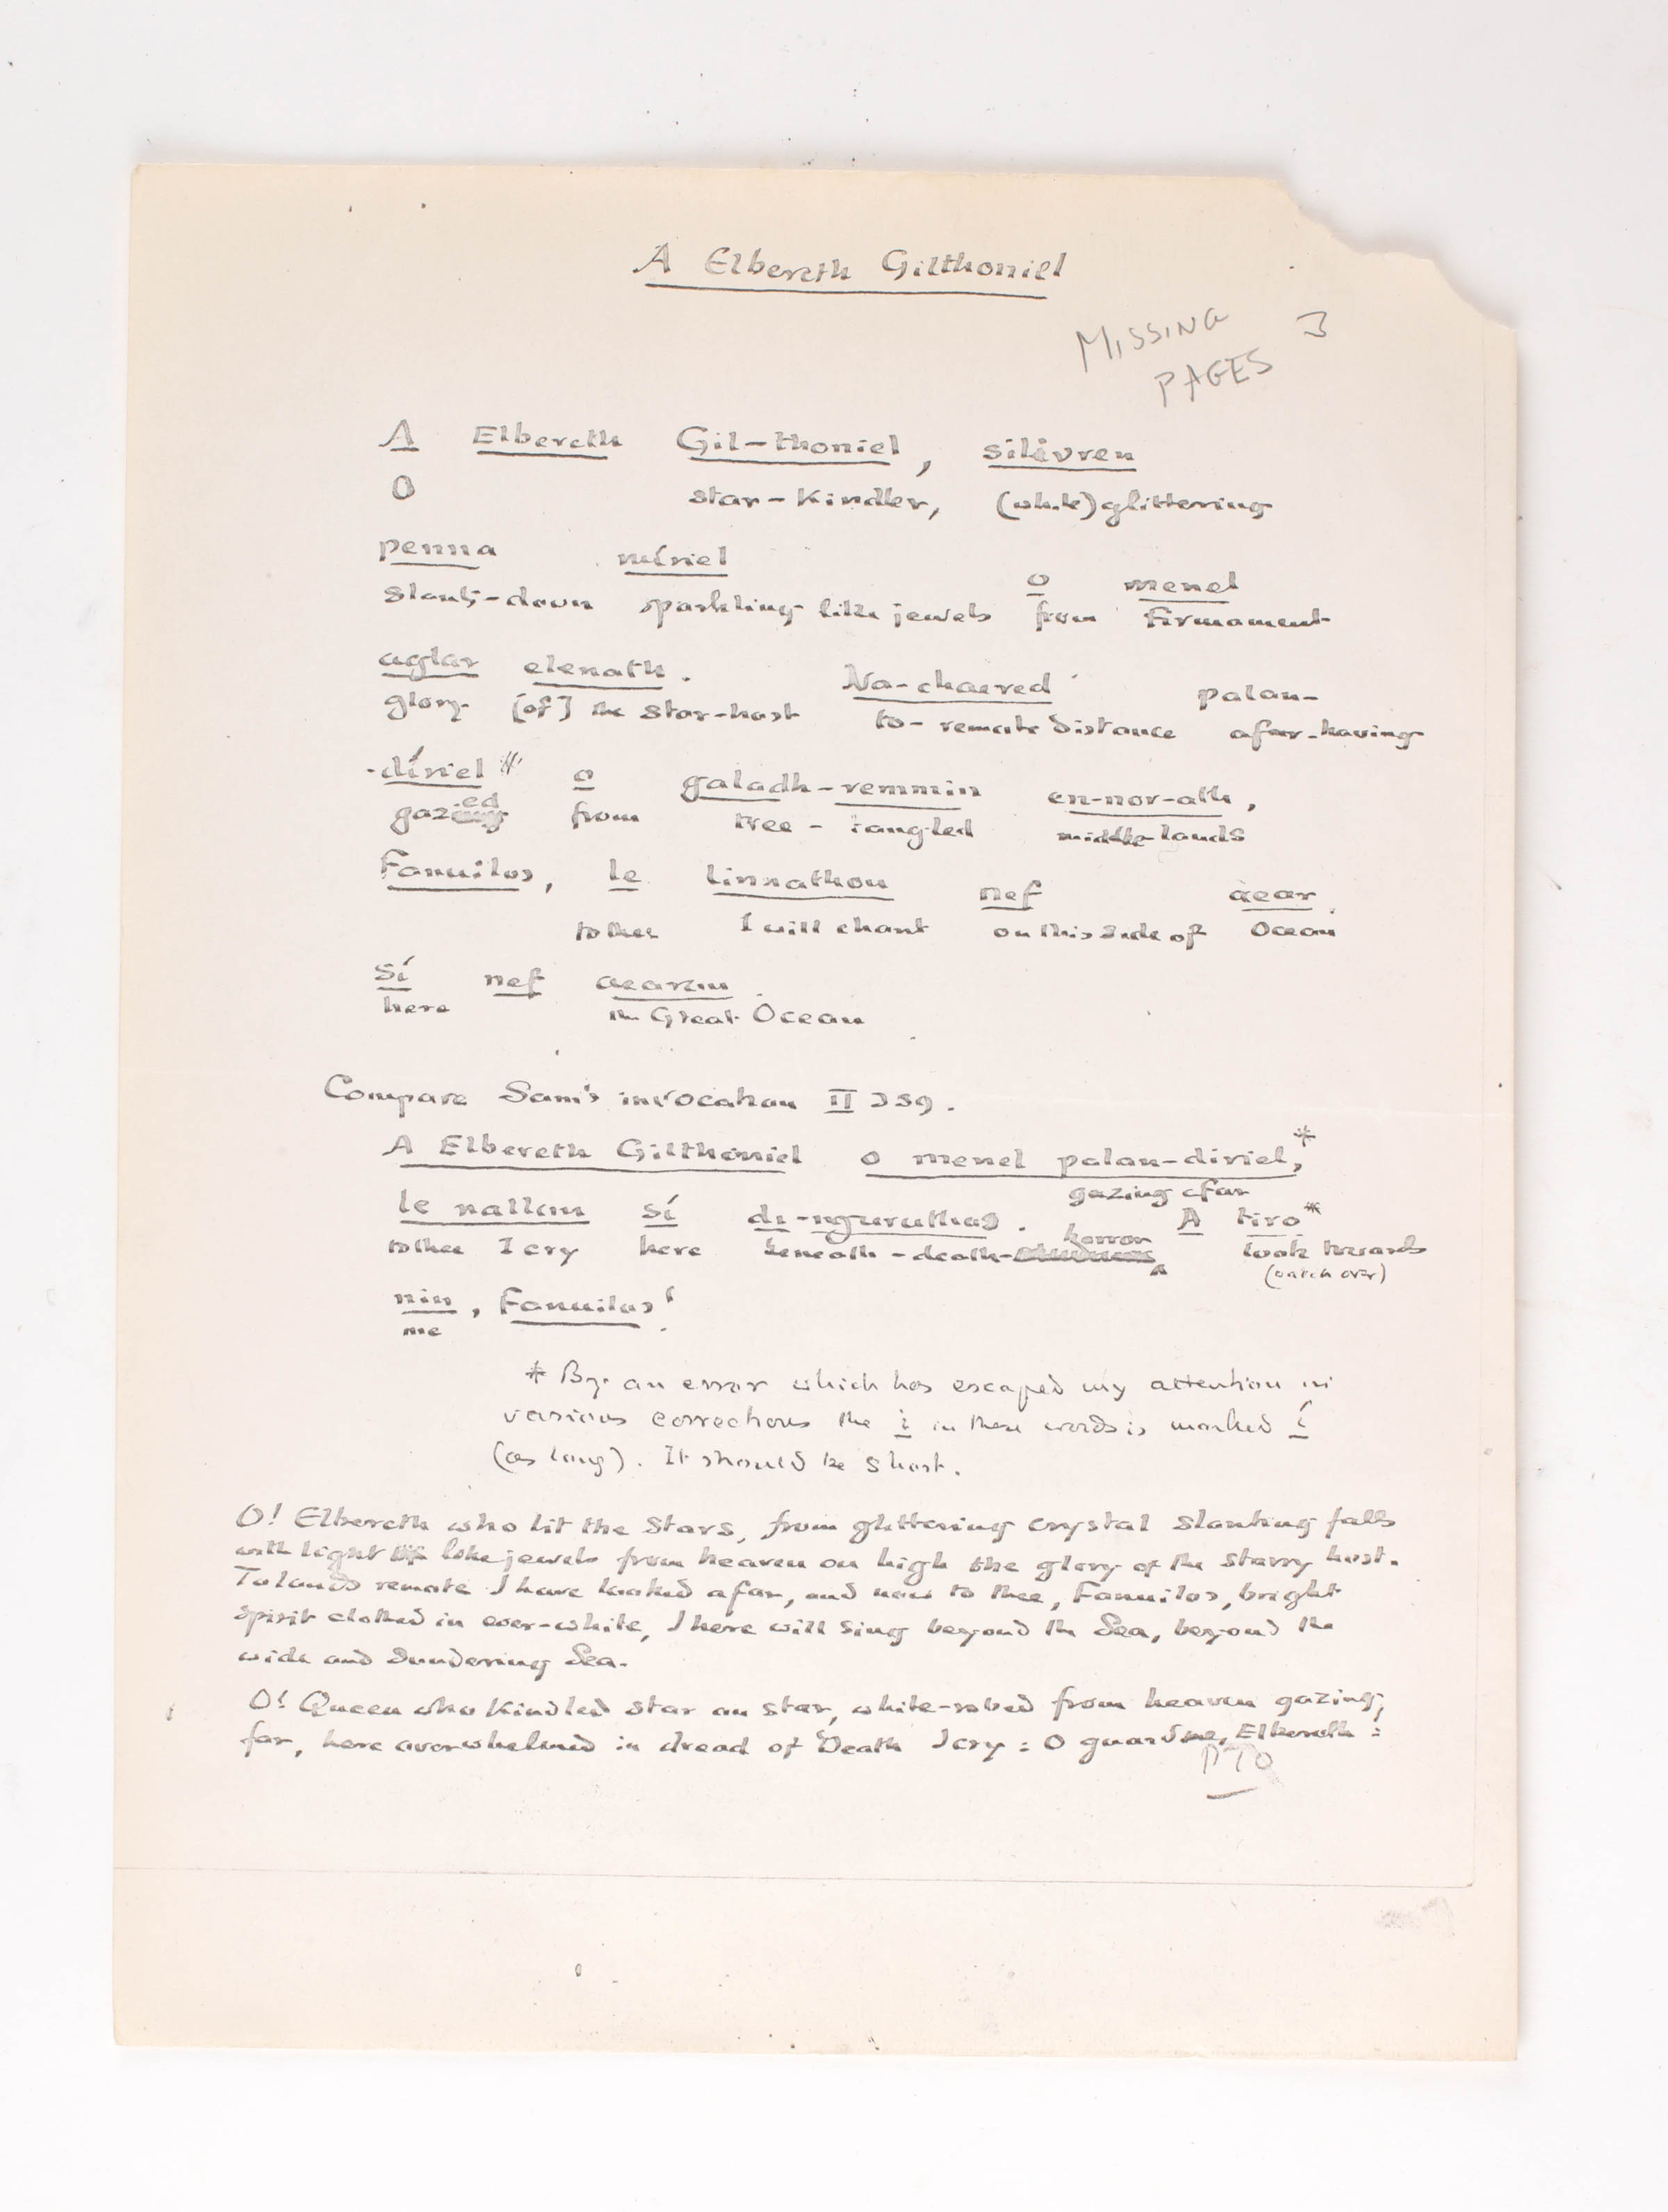 A Elbereth Gilthoniel
MISSING 3
PAGES
A Elbereth Gil-thoniel, silivren
O star-kindler, (white) glittering
penna míriel o menel
slants-down sparkling like jewels from firmament
aglar elenath. Na-chaered palan-
glory [of] the star-host to-remote distance afar-having
-díriel* o galadh-remmin en-nor-ath,
gazed from tree-tangled middle-lands
Fanuilos, le linnathon nef aear
to thee I will chant on this side of Ocean
sí nef aearon
here the Great Ocean
Compare Sam's invocation II 339.
A Elbereth Gilthoniel o menel palan-diriel,*
gazing afar
le nallon sí di-nguruthos. A tiro*
to thee I cry here beneath-death-horror look towards
(watch over)
nin, Fanuilos!
me
* By an error which has escaped my attention in
various corrections the i in these words is marked í
(as long). It should be short.
O! Elbereth who lit the Stars, from glittering crystal slanting falls
with light like jewels from heaven on high the glory of the starry host.
To lands remote I have looked afar, and now to thee, Fanuilos, bright
spirit clothed in ever-white, I here will sing beyond the Sea, beyond the
wide and Sundering Sea.
O! Queen who kindled star on star, white-robed from heaven gazing
far, here overwhelmed in dread of Death I cry: O guard me, Elbereth!
PTO